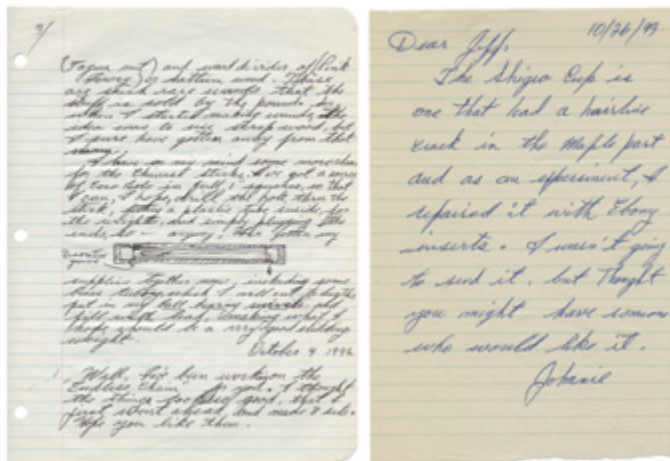 3/
(Tagua nut) and wand divider of (Pink
Ivory) or sattin wood. These
are such rare woods that the
stuff is sold by the pounds
when I started making wands, the
idea was to use scrap wood, but
I sure have gotten away from that
I have on my mind some more ideas
for the Chinese sticks. I've got a source
of Coco bolo in full 1" squares, so that
I can, I hope, drill the hole thru the
stick, a plastic tube inside, for
the weights, and simply plugging the
ends, so - anyway! I've gotten my
supplies together now, including some
put in my
fill with lead, making what I
hope should be a very good sliding
weight.
October 4 1992
Well, I've been working on the
"Endless Chain" for you. I thought
the things good, that I
just went ahead, and made
Hope you like them.
10/26/93
Dear Jeff,
The Shigeo Cup is
one that had a hairline
crack in the Maple part
and as an experiment, I
repaired it with Ebony
inserts. I wasn't going
to send it, but thought
you might have someone
who would like it.
Johnnie